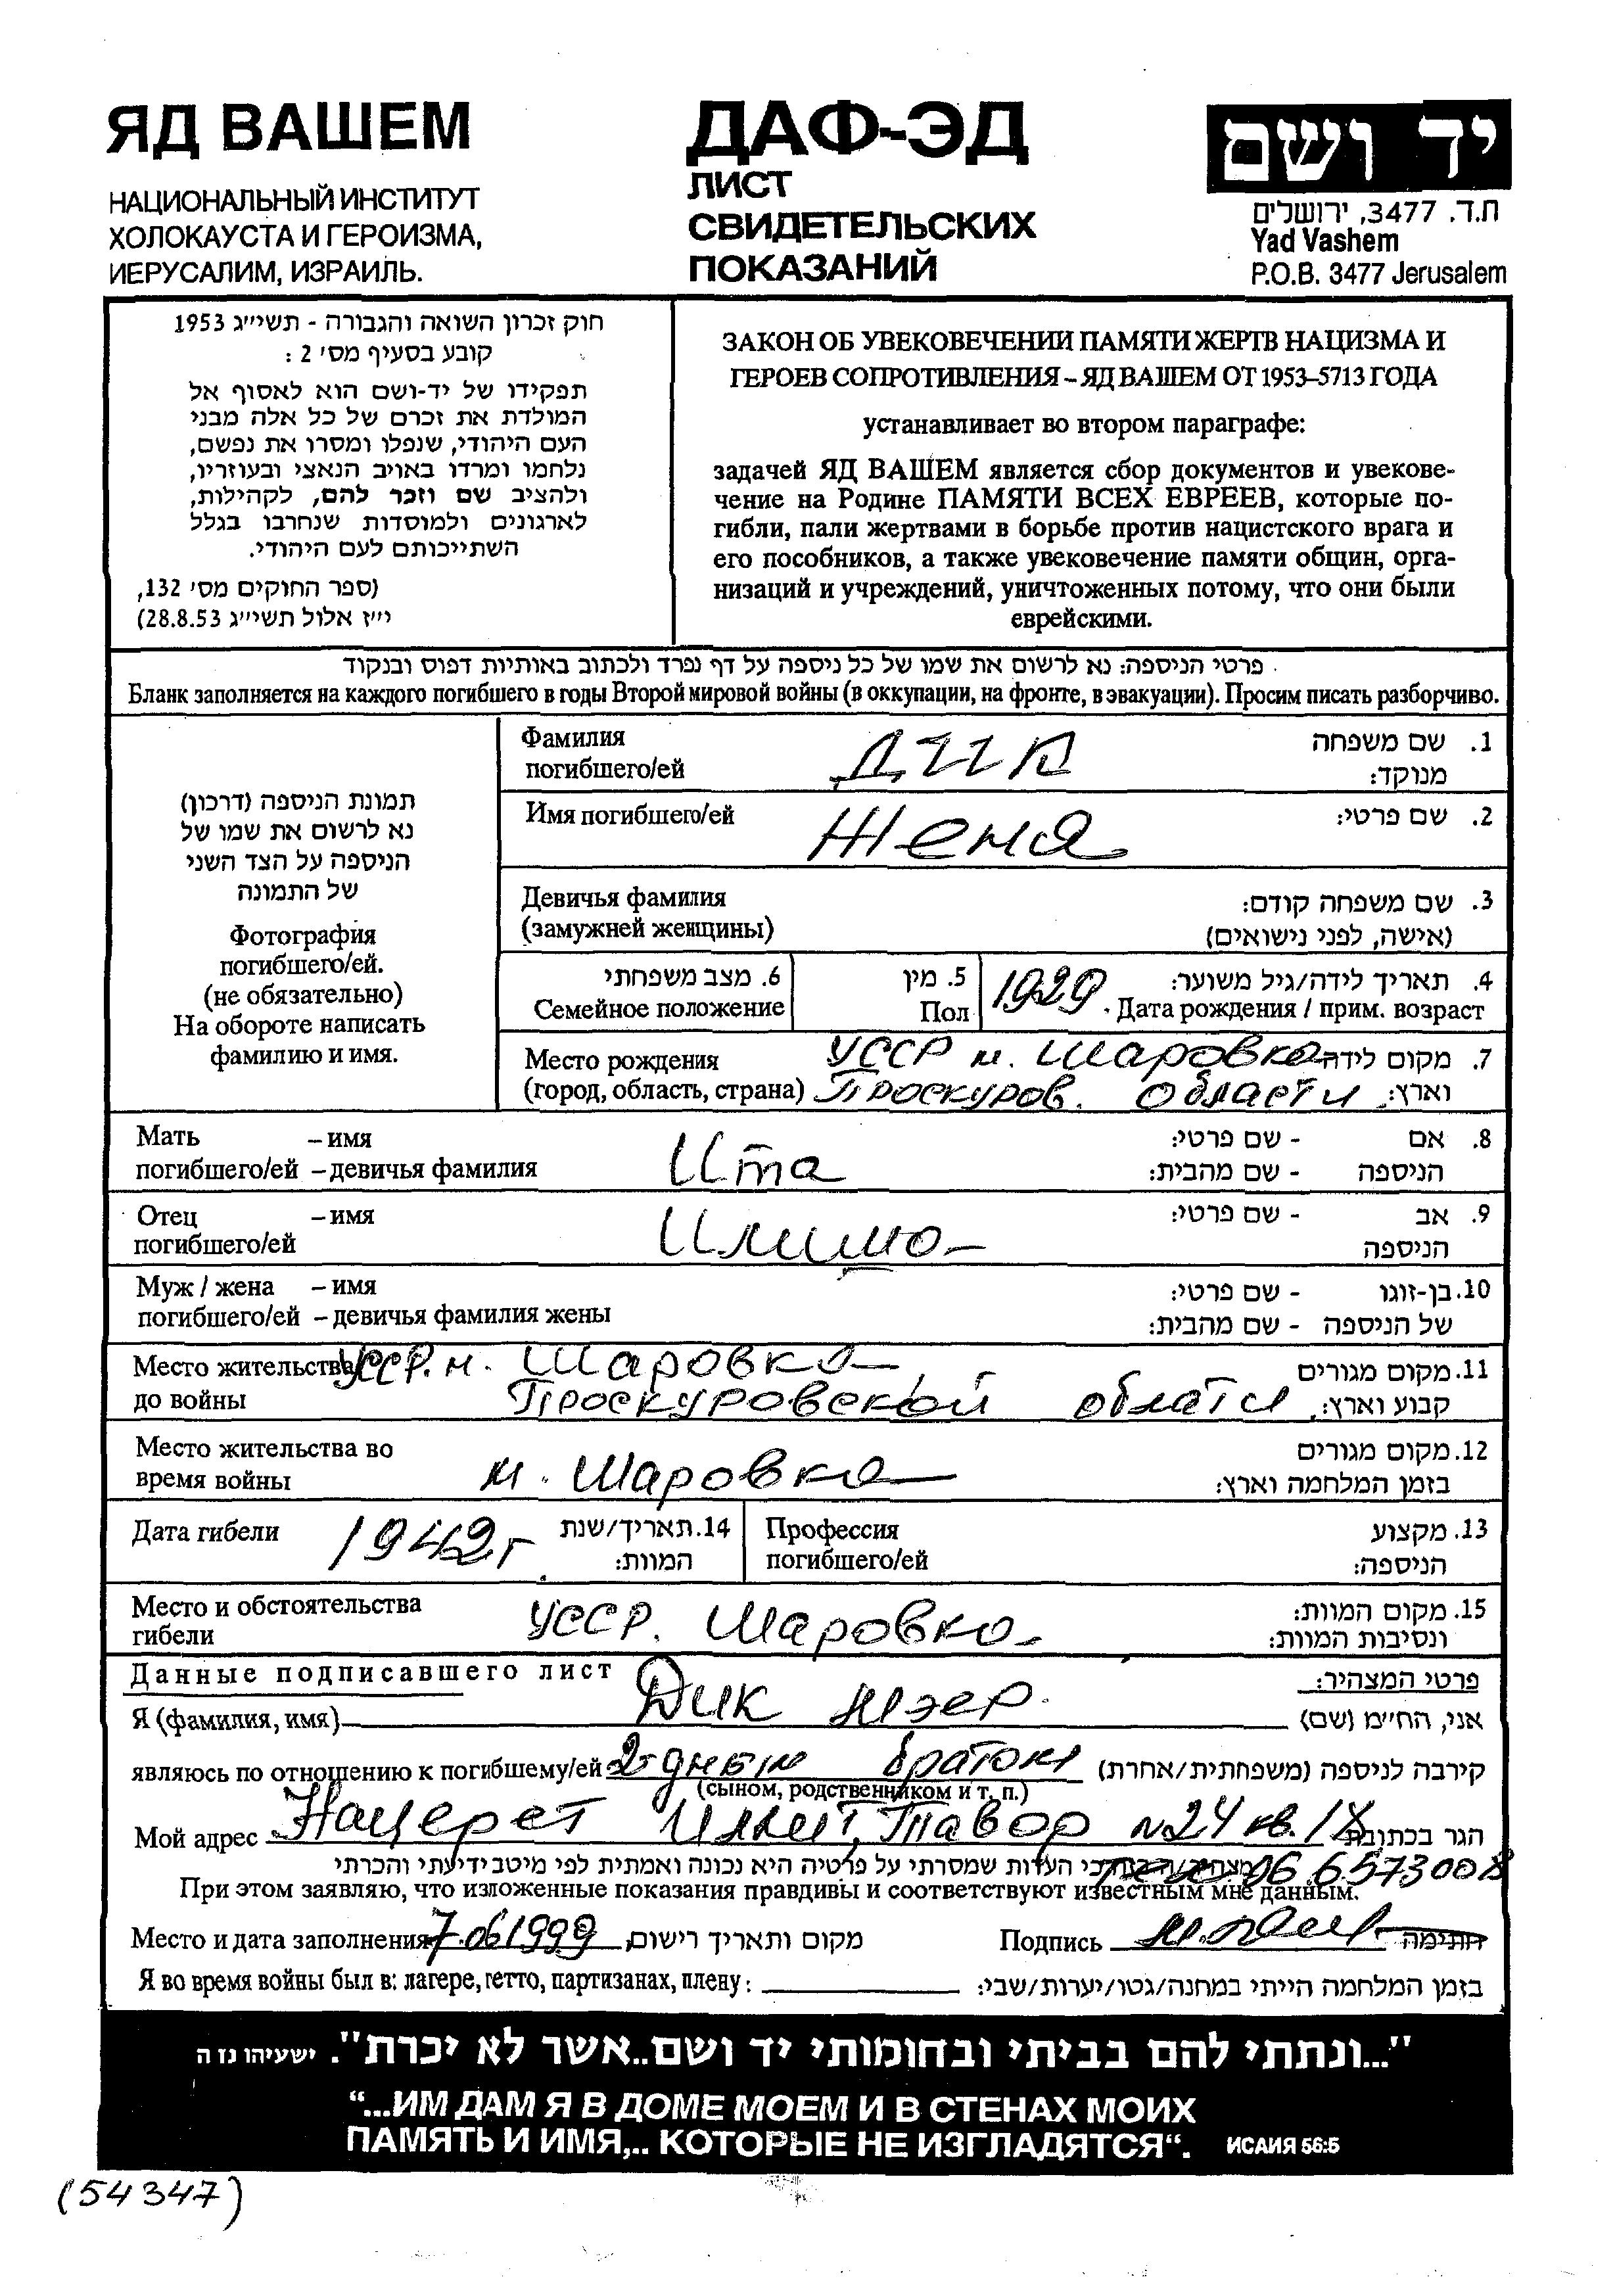 ЯД ВАШЕМ
НАЦИОНАЛЬНЫЙ ИНСТИТУТ
ХОЛОКАУСТА И ГЕРОИЗМА,
ИЕРУСАЛИМ, ИЗРАИЛЬ.
ДАФ-ЭД
ЛИСТ
СВИДЕТЕЛЬСКИХ
ПОКАЗАНИЙ
יד ושם
ת.ד. 3477, ירושלים
Yad Vashem
P.O.B. 3477 Jerusalem
חוק זכרון השואה והגבורה - תשי״ג 1953
קובע בסעיף מס׳ 2 :
תפקידו של יד-ושם הוא לאסוף אל
המולדת את זכרם של כל אלה מבני
העם היהודי, שנפלו ומסרו את נפשם,
נלחמו ומרדו באויב הנאצי ובעוזריו,
ולהציב שם וזכר להם, לקהילות,
לארגונים ולמוסדות שנחרבו בגלל
השתייכותם לעם היהודי.
(ספר החוקים מס׳ 132,
י״ז אלול תשי״ג 28.8.53)
ЗАКОН ОБ УВЕКОВЕЧЕНИИ ПАМЯТИ ЖЕРТВ НАЦИЗМА И
ГЕРОЕВ СОПРОТИВЛЕНИЯ – ЯД ВАШЕМ ОТ 1953–5713 ГОДА
устанавливает во втором параграфе:
задачей ЯД ВАШЕМ является сбор документов и увекове-
чение на Родине ПАМЯТИ ВСЕХ ЕВРЕЕВ, которые по-
гибли, пали жертвами в борьбе против нацистского врага и
его пособников, а также увековечение памяти общин, орга-
низаций и учреждений, уничтоженных потому, что они были
еврейскими.
פרטי הניספה: נא לרשום את שמו של כל ניספה על דף נפרד ולכתוב באותיות דפוס ובנקוד
Бланк заполняется на каждого погибшего в годы Второй мировой войны (в оккупации, на фронте, в эвакуации). Просим писать разборчиво.
תמונת הניספה (דרכון)
נא לרשום את שמו של
הניספה על הצד השני
של התמונה
Фотография
погибшего/ей.
(не обязательно)
На обороте написать
фамилию и имя.
Фамилия Дик 1. שם משפחה
погибшего/ей מנוקד:
Имя погибшего/ей Жена 2. שם פרטי:
Девичья фамилия 3. שם משפחה קודם:
(замужней женщины) (אישה, לפני נישואים)
6. מצב משפחתי 5. מין 1929 4. תאריך לידה/גיל משוער:
Семейное положение Пол Дата рождения / прим. возраст
Место рождения УССР м. Шаровка 7. מקום לידה
(город, область, страна) Проскуров. области וארץ:
Мать – имя Ита 8. אם - שם פרטי:
погибшего/ей – девичья фамилия הניספה - שם מהבית:
Отец – имя 9. אב - שם פרטי:
погибшего/ей הניספה
Муж / жена – имя 10. בן-זוגו - שם פרטי:
погибшего/ей – девичья фамилия жены של הניספה - שם מהבית:
Место жительства УССР. м. Шаровка, 11. מקום מגורים
до войны Проскуровской области קבוע וארץ:
Место жительства во м. Шаровка 12. מקום מגורים
время войны בזמן המלחמה וארץ:
Дата гибели 1942г. 14. תאריך/שנת המוות: Профессия 13. מקצוע
погибшего/ей הניספה:
Место и обстоятельства УССР. Шаровка 15. מקום המוות:
гибели ונסיבות המוות:
Данные подписавшего лист פרטי המצהיר:
Я (фамилия, имя) Дик Мэер אני, הח״מ (שם)
являюсь по отношению к погибшему/ей 2-дным братом קירבה לניספה (משפחתית/אחרת)
(сыном, родственником и т. п.)
Мой адрес Нацерет Иллит, Тавор №24 кв. 18 הגר בכתובת
העדות שמסרתי על פרטיה היא נכונה ואמתית לפי מיטב ידיעתי והכרתי тел. 06.6573008
При этом заявляю, что изложенные показания правдивы и соответствуют известным мне данным.
Место и дата заполнения 7.06 1999 מקום ותאריך רישום, Подпись חתימה
Я во время войны был в: лагере, гетто, партизанах, плену: בזמן המלחמה הייתי במחנה/גטו/יערות/שבי:
"...ונתתי להם בביתי ובחומותי יד ושם..אשר לא יכרת". ישעיהו נז ה
“...ИМ ДАМ Я В ДОМЕ МОЕМ И В СТЕНАХ МОИХ
ПАМЯТЬ И ИМЯ,.. КОТОРЫЕ НЕ ИЗГЛАДЯТСЯ“. ИСАИЯ 56:5
(54347)